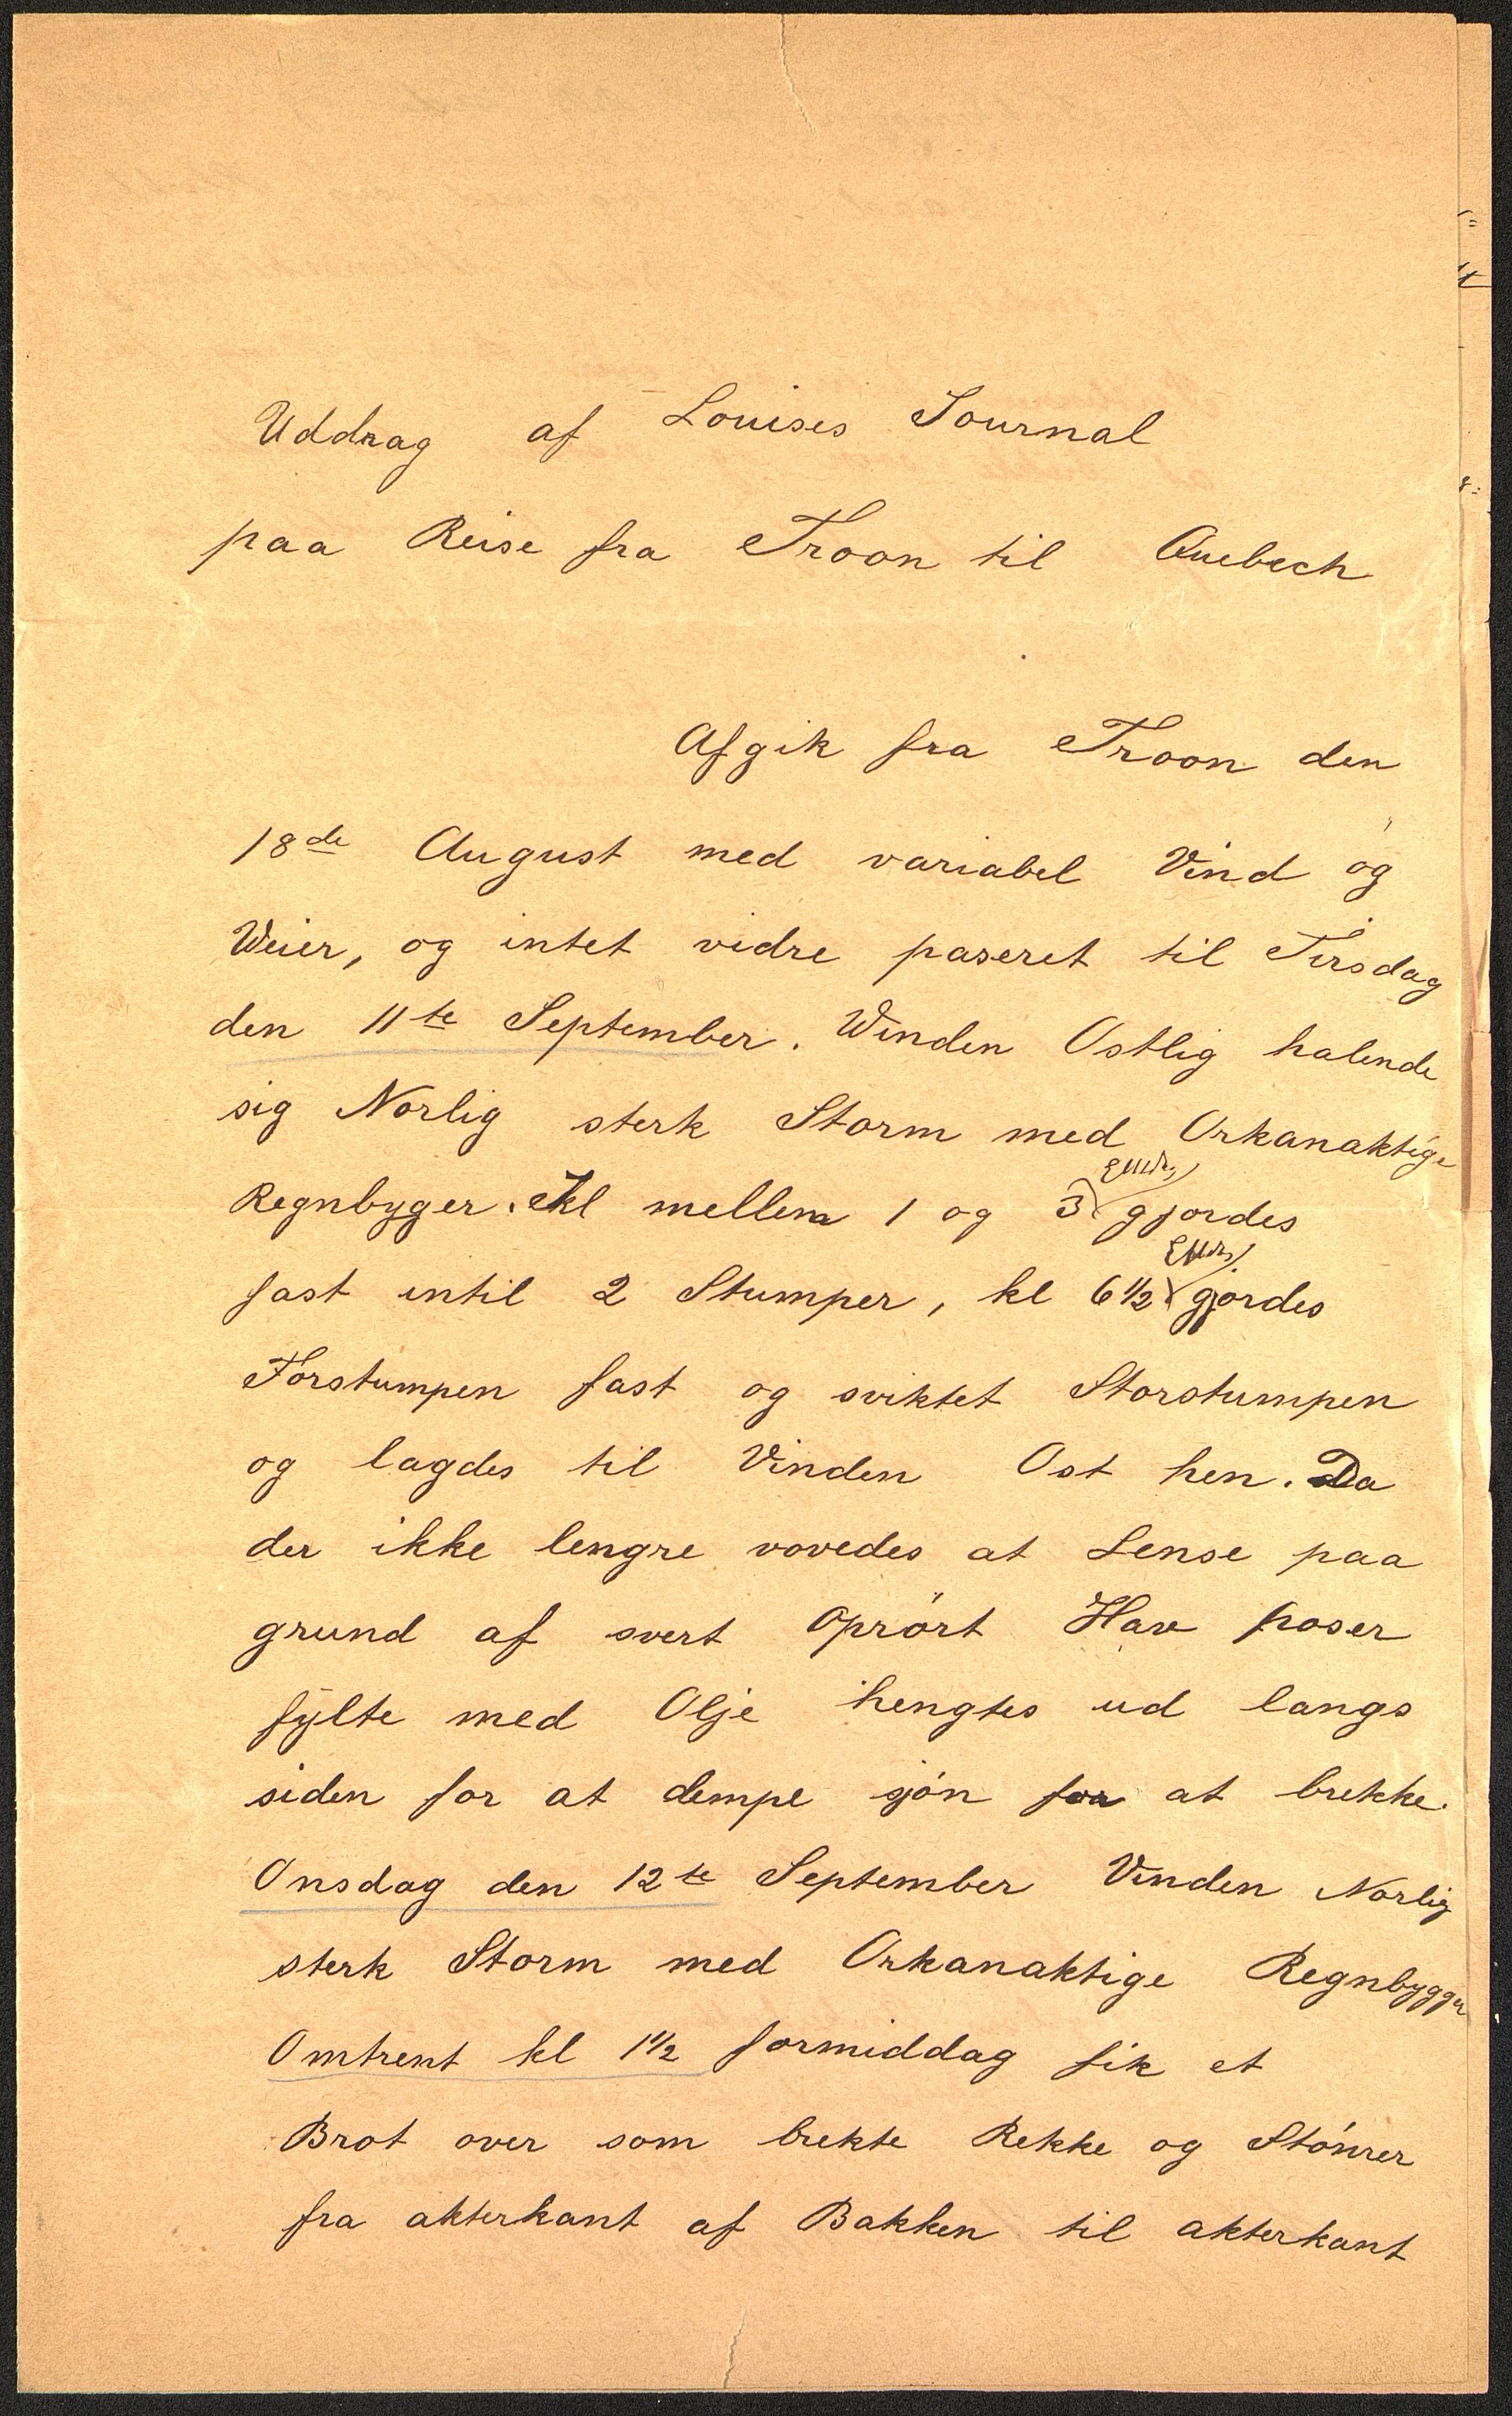 Uddrag af Louises Journal
paa Reise fra Troon til Quebech
Afgik fra Troon den
18de August med variabel Vind og
Weier, og intet vidre paseret til Tirsdag
den 11te September. Winden Ostlig halende
sig Norlig sterk Storm med Orkanaktige
Regnbyger. Kl mellem 1 og 3 gjordes
fast intil 2 Stumper, kl 6 1/2 gjordes
Forstumpen fast og sviktet Storstumpen
og lagdes til Vinden Ost hen. Da
der ikke lengre vovedes at Lense paa
grund af svert Oprört Hav poser
fylte med Olje hengtes ud langs
siden for at dempe sjón for at brekke.
Onsdag den 12te September Vinden Norlig
sterk Storm med Orkanaktige Regnbygger
Omtrent kl 1 1/2 formiddag fik et
Brot over som brekte Rekke og Stónrer
fra akterkant af Bakken til akterkant